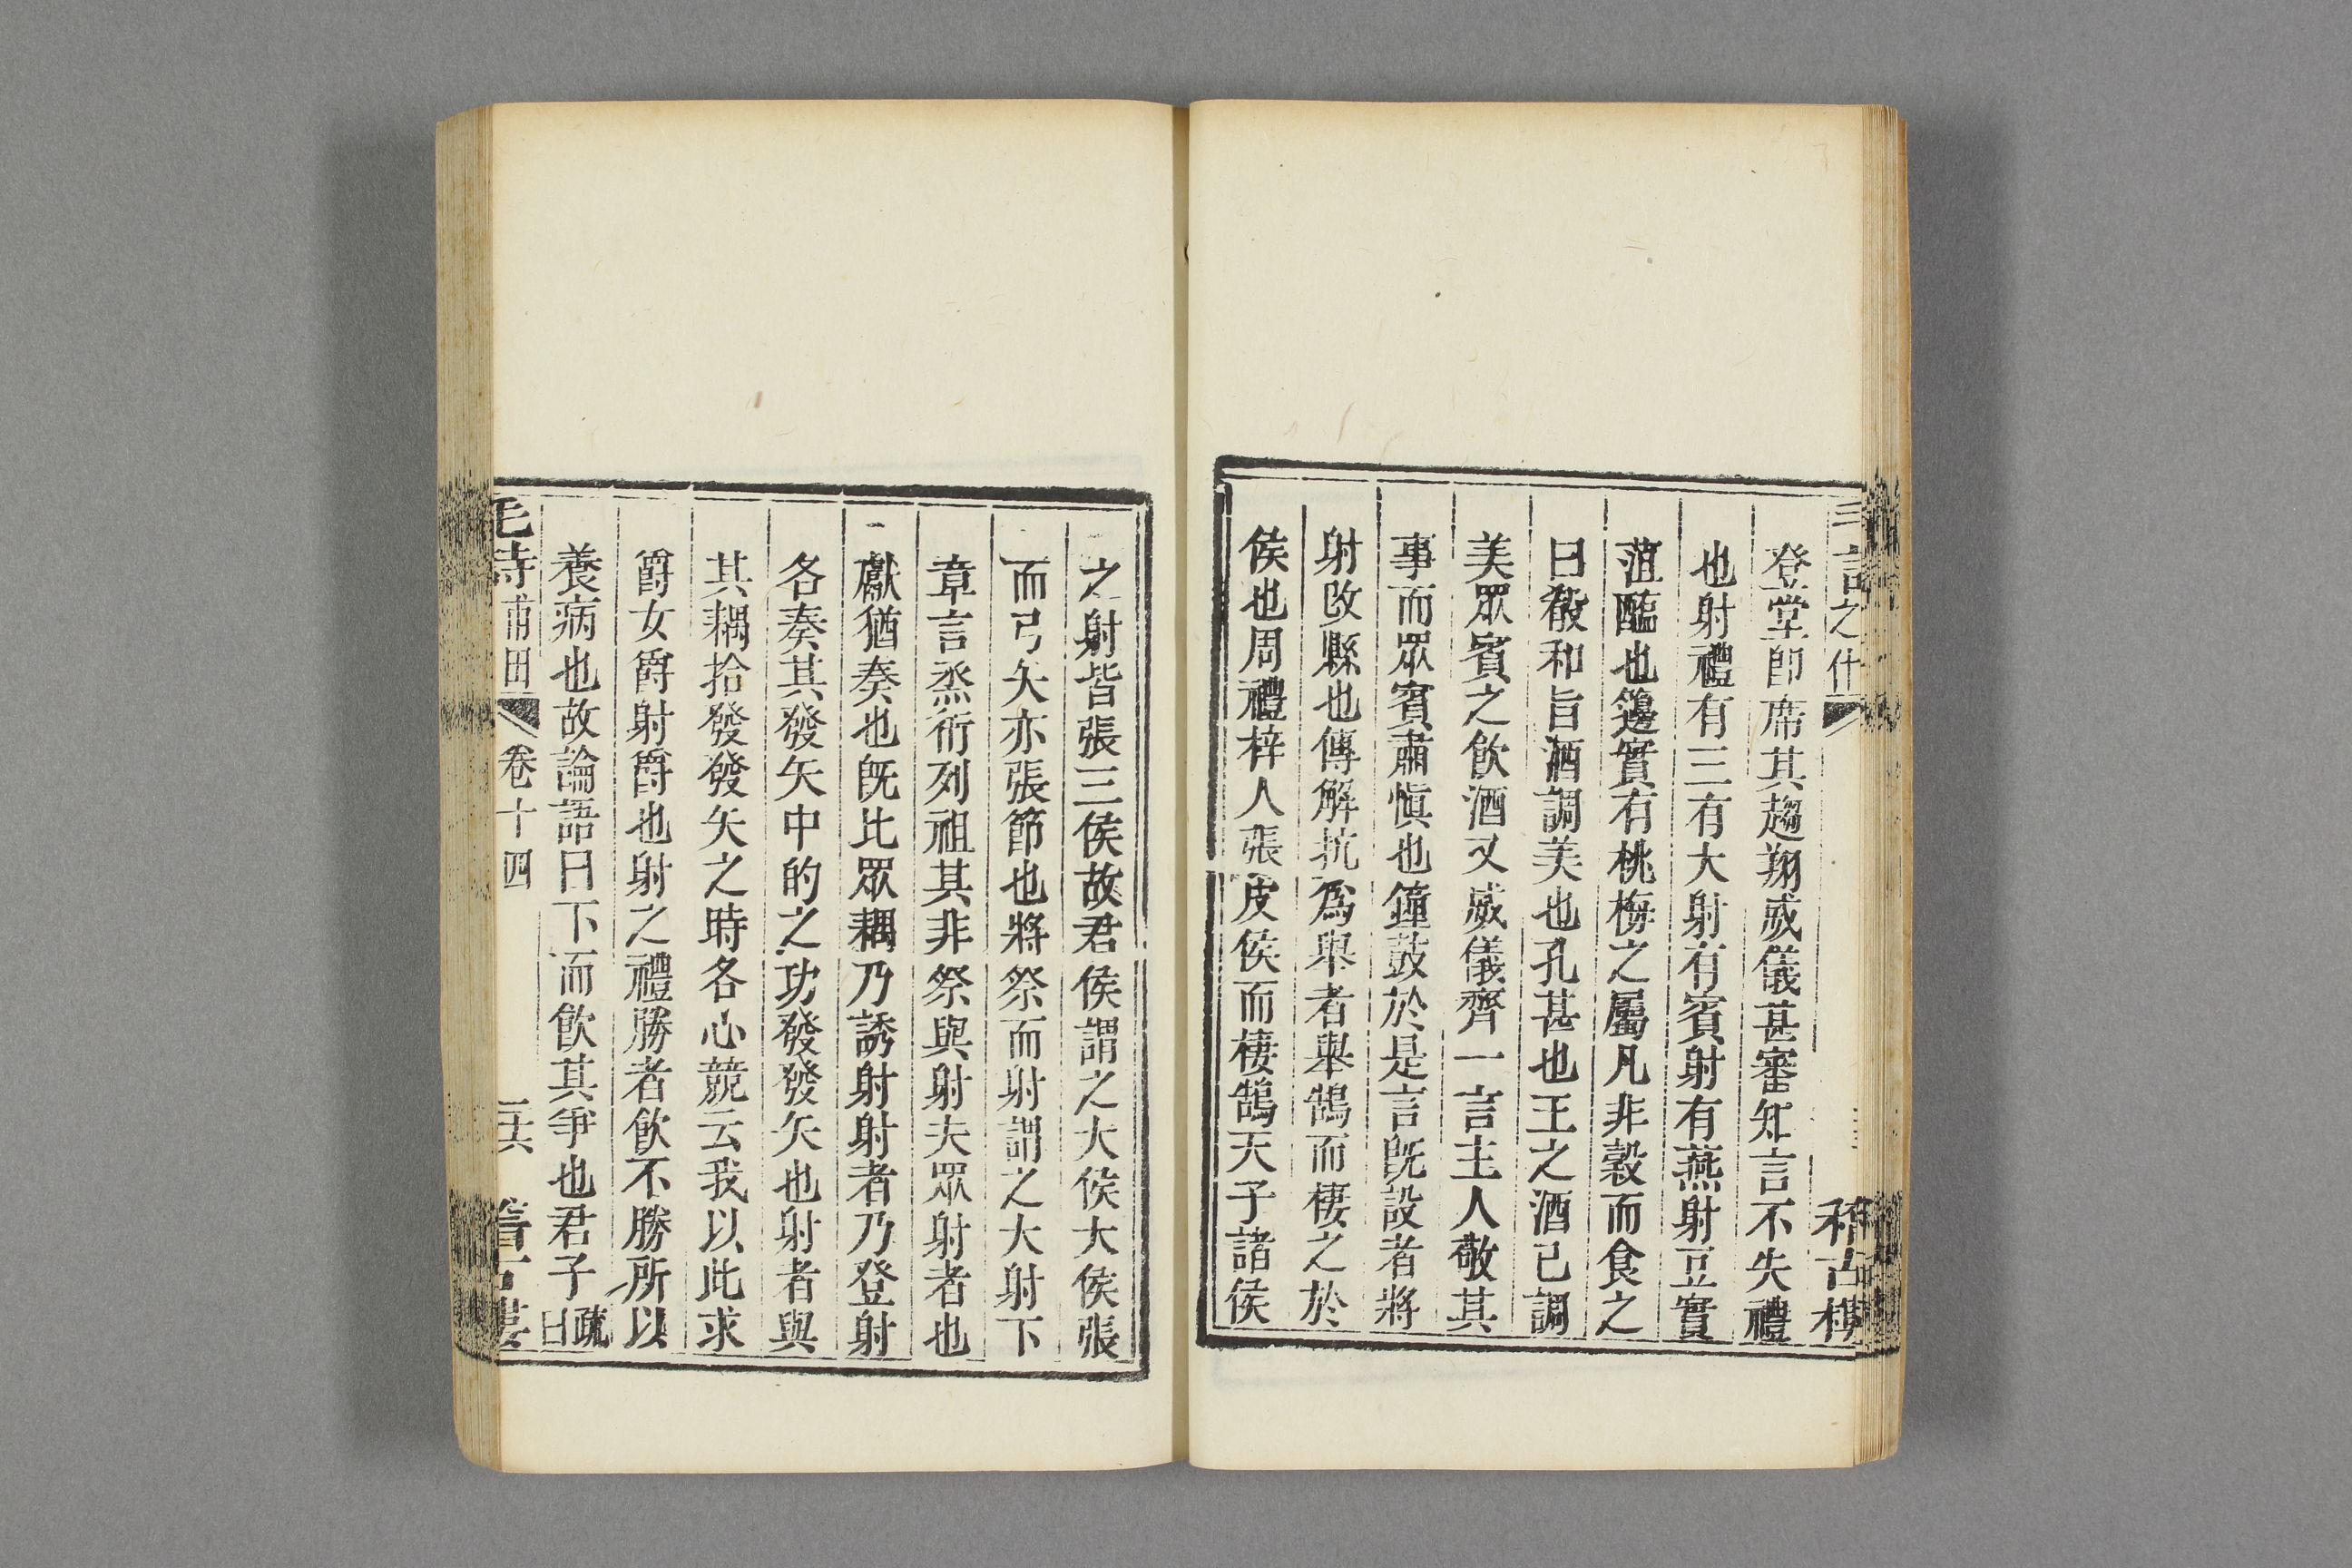 之什 稽古樓
登堂卽席其趨翔威儀甚審知言不失禮
也射禮有三有大射有賓射有燕射豆實
菹醢也籩實有桃梅之屬凡非穀而食之
曰殽和旨酒調美也孔甚也王之酒已調
美眾賓之飮酒又威儀齊一言主人敬其
事而眾賓肅愼也鐘鼓於是言旣設者將
射改縣也傳解抗爲舉者舉鵠而棲之於
侯也周禮梓人張皮侯而棲鵠天子諸侯
之射皆張三侯故君侯謂之大侯大侯張
而弓矢亦張節也將祭而射謂之大射下
章言烝衎列祖其非祭與射夫眾射者也
獻猶奏也旣比眾耦乃誘射射者乃登射
各奏其發矢中的之功發發矢也射者與
其耦拾發發矢之時各心競云我以此求
爵女爵射爵也射之禮勝者飮不勝所以
養病也故論語曰下而飮其爭也君子疏曰
毛詩甫田 卷十四 二六